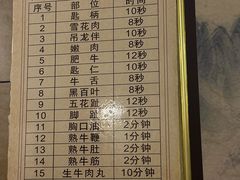 序号 部位 时间
1 匙柄 10秒
2 雪花肉 8秒
3 吊龙伴 10秒
4 嫩肉 8秒
5 肥牛 12秒
6 匙仁 10秒
7 牛舌 8秒
8 黑百叶 8秒
9 五花趾 12秒
10 脚趾 12秒
11 胸口油 2分钟
12 熟牛鞭 1分钟
13 熟牛肚 2分钟
14 熟牛筋 2分钟
15 生牛肉丸 10分钟